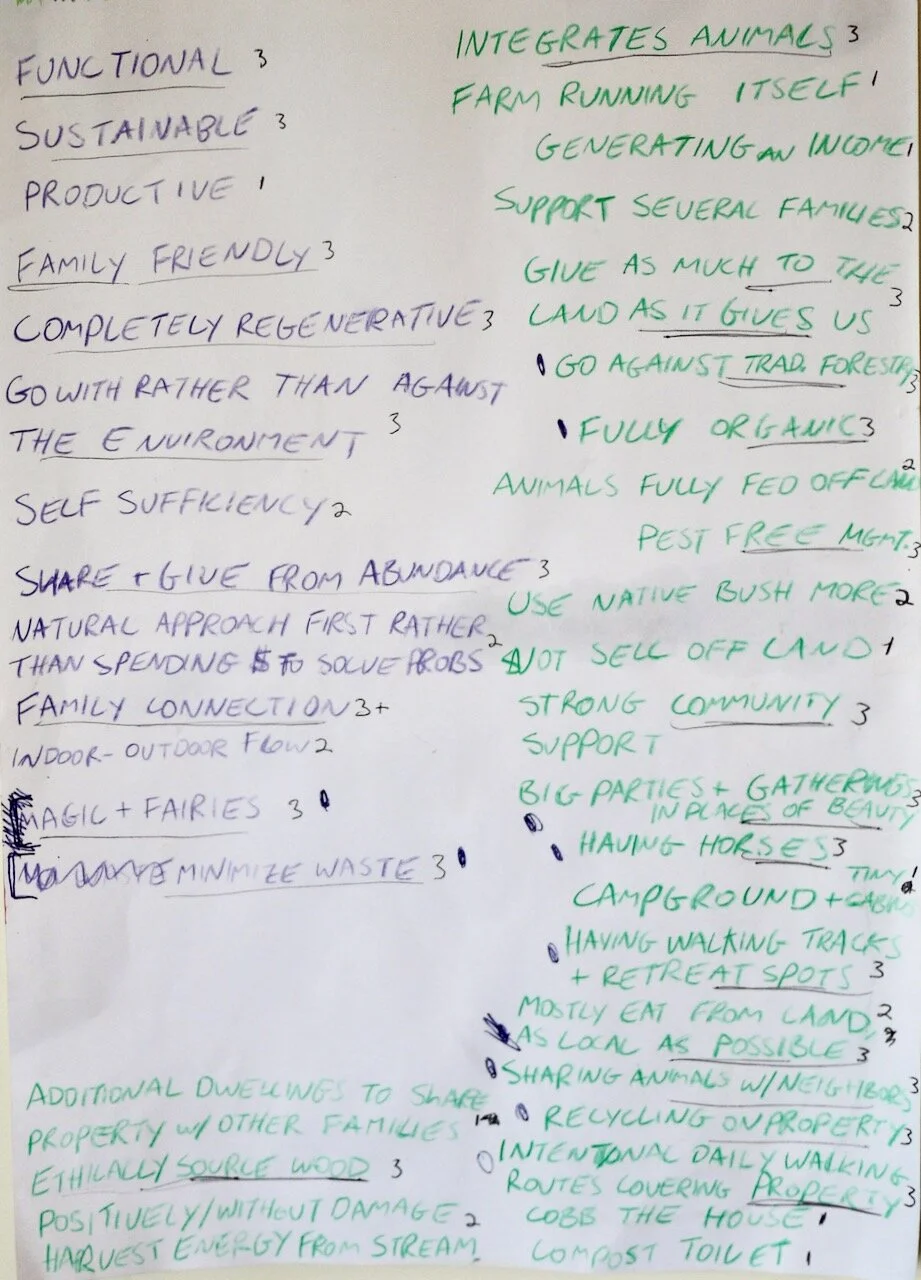 FUNCTIONAL 3
SUSTAINABLE 3
PRODUCTIVE 1
FAMILY FRIENDLY 3
COMPLETELY REGENERATIVE 3
GO WITH RATHER THAN AGAINST
THE ENVIRONMENT 3
SELF SUFFICIENCY 2
SHARE + GIVE FROM ABUNDANCE 3
NATURAL APPROACH FIRST RATHER
THAN SPENDING $ TO SOLVE PROBS 2
FAMILY CONNECTION 3+
INDOOR-OUTDOOR FLOW 2
MAGIC + FAIRIES 3
MINIMIZE WASTE 3
ADDITIONAL DWELLINGS TO SHARE
PROPERTY W/ OTHER FAMILIES
ETHICALLY SOURCE WOOD 3
POSITIVELY/WITHOUT DAMAGE 2
HARVEST ENERGY FROM STREAM
INTEGRATES ANIMALS 3
FARM RUNNING ITSELF 1
GENERATING AN INCOME 1
SUPPORT SEVERAL FAMILIES 2
GIVE AS MUCH TO THE
LAND AS IT GIVES US 3
GO AGAINST TRAD. FORESTRY 3
FULLY ORGANIC 3
ANIMALS FULLY FED OFF LAND 2
PEST FREE MGMT. 3
USE NATIVE BUSH MORE 2
NOT SELL OFF LAND 1
STRONG COMMUNITY 3
SUPPORT
BIG PARTIES + GATHERINGS 3
IN PLACES OF BEAUTY
HAVING HORSES 3
TINY 1
CAMPGROUND + CABINS
HAVING WALKING TRACKS
+ RETREAT SPOTS 3
MOSTLY EAT FROM LAND, 2
AS LOCAL AS POSSIBLE 3
SHARING ANIMALS W/NEIGHBORS 3
RECYCLING ON PROPERTY 3
INTENTIONAL DAILY WALKING
ROUTES COVERING PROPERTY 3
COBB THE HOUSE 1
COMPOST TOILET 1